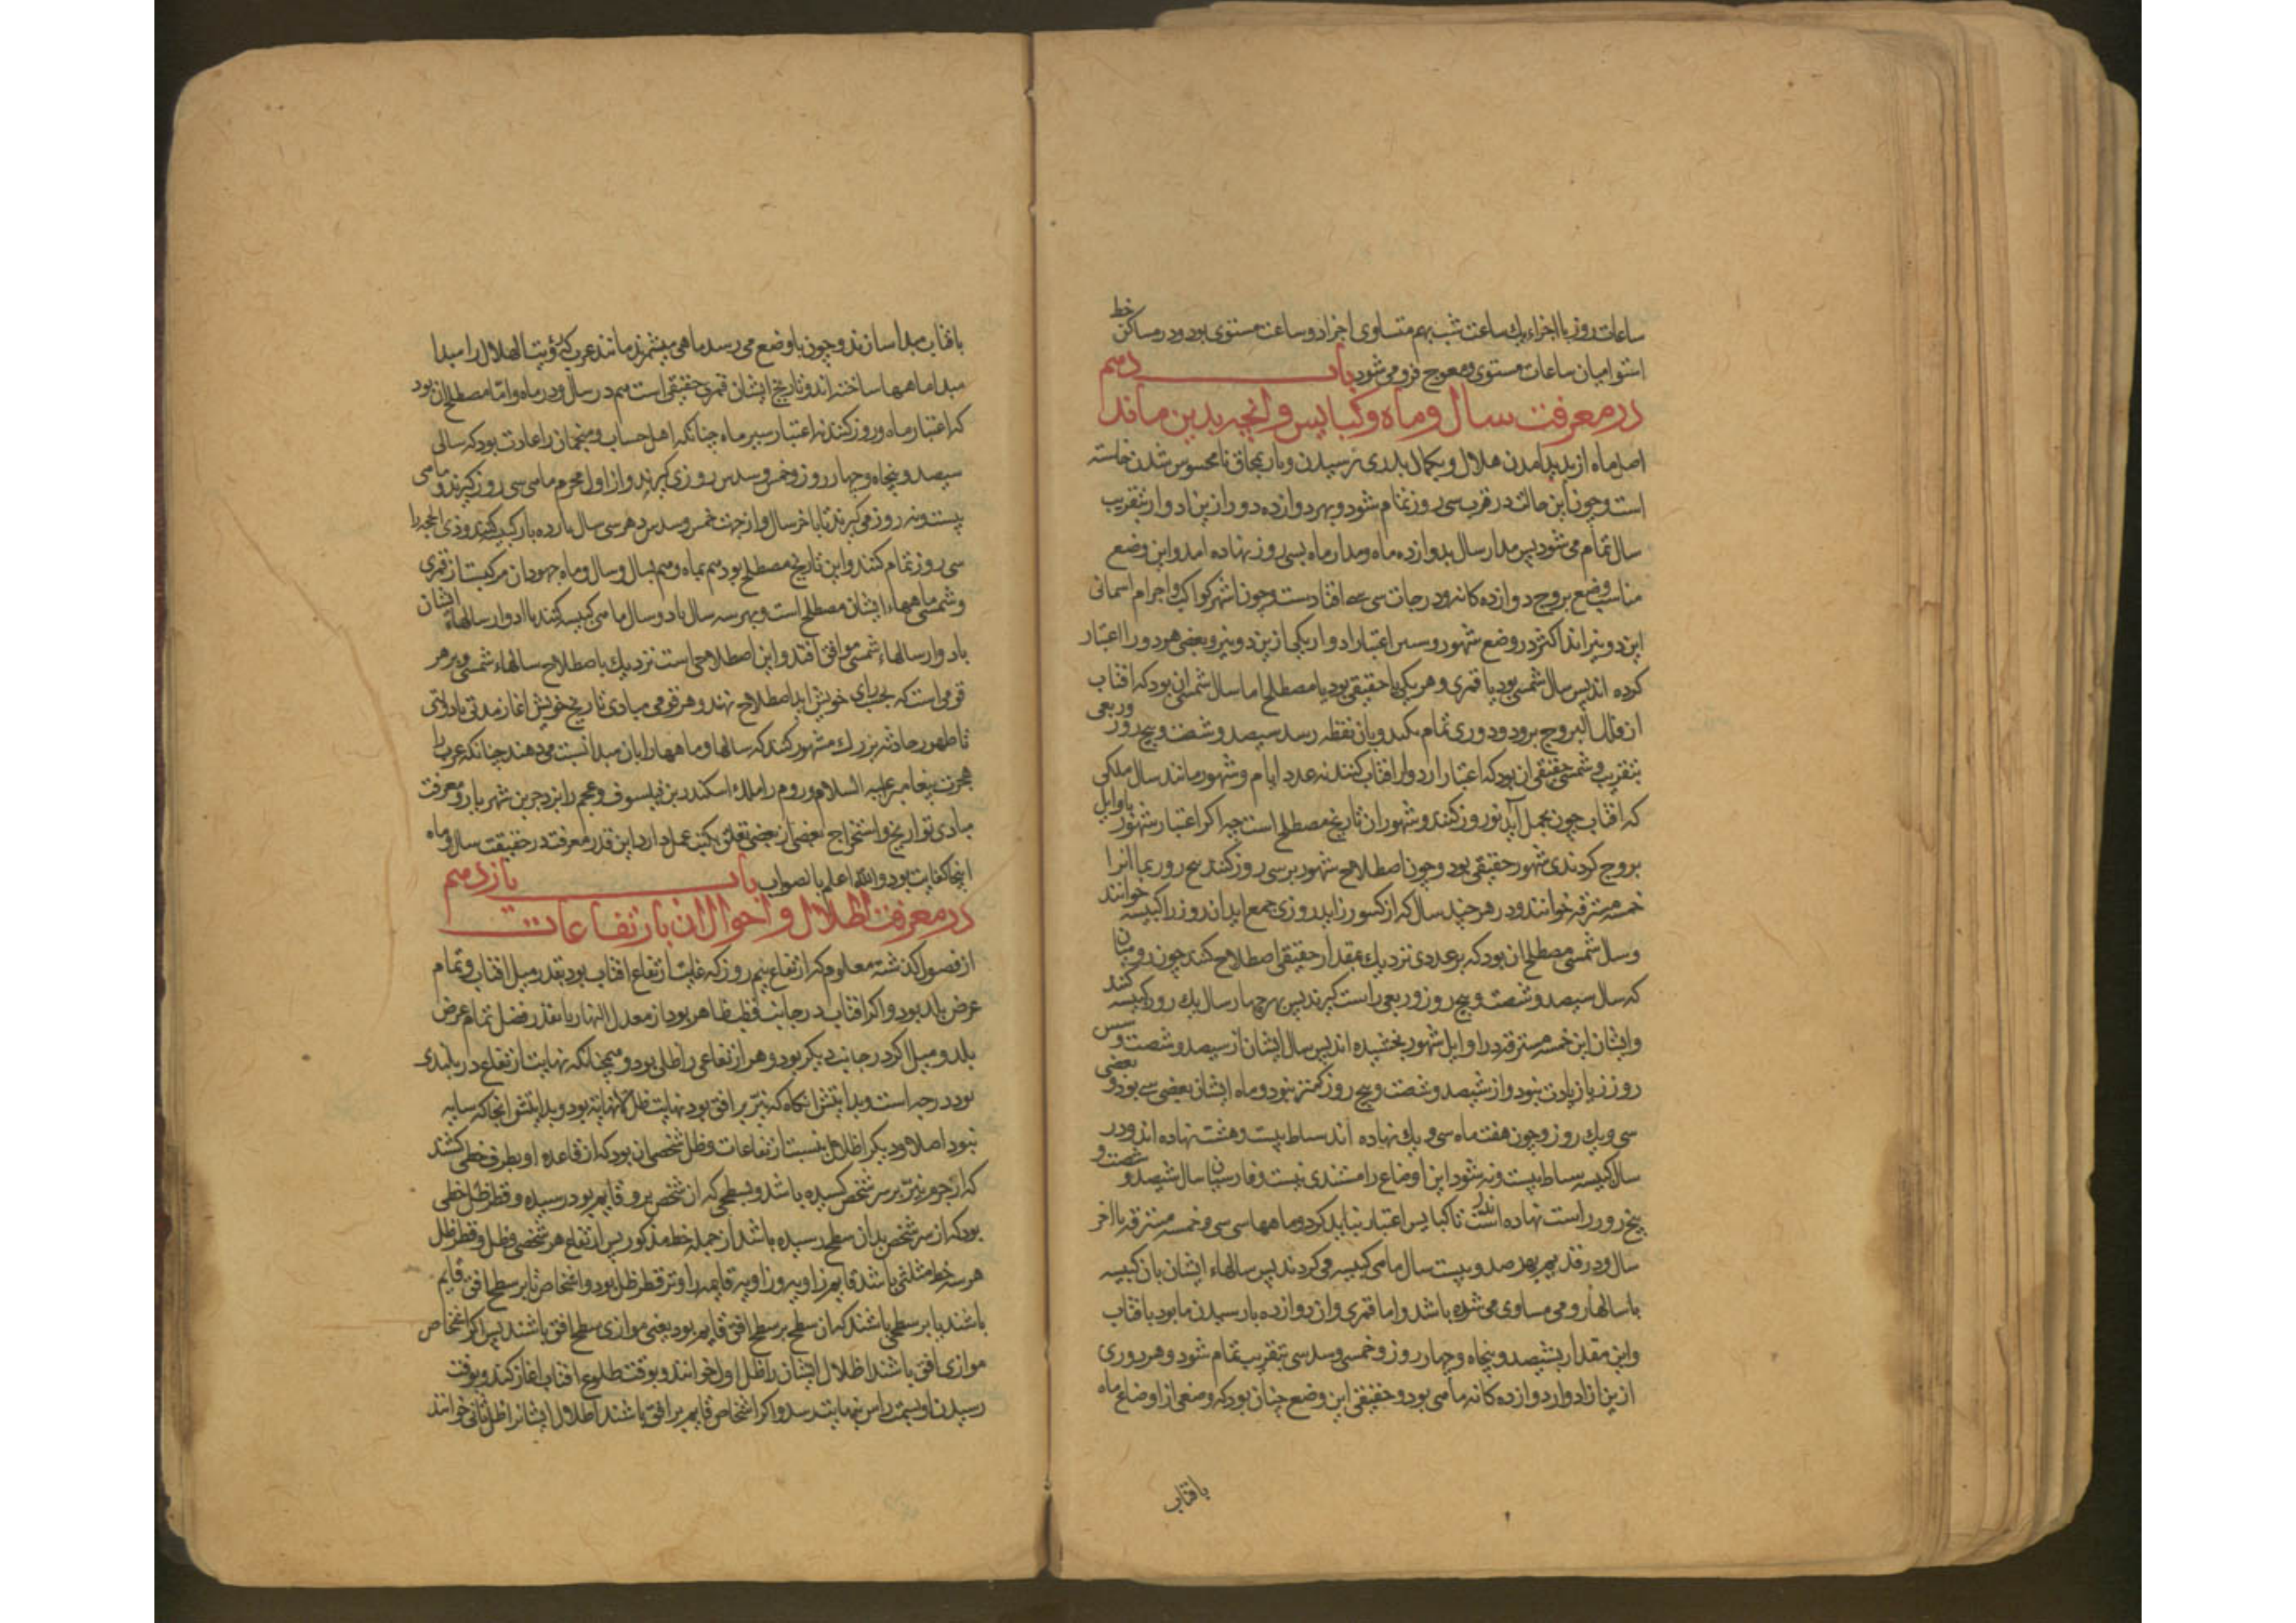 ساعات روز با اجزاء یك ساعت شب بهم متساوی اجزا دو ساعت مستوی بود و در مساکن خط
استوا میان ساعات مستوی و معوج فرو می شود باب دهم
در معرفت سال و ماه و کبایس و آنچه بدین ماند
اصل ماه از پدید امدن هلال و بکمال بدری رسیدن و باز بمحاق نامحسوس شدن خاسته
است و چون این حالت در قرب سی روز تمام شود و بهر دوازده دور ازین ادوار بتقریب
سال تمام می شود پس مدار سال بدوازده ماه و مدار ماه بسی روز نهاده امد و این وضع
مناسب وضع بروج دوازده کانه و درجات سی افتادست و چون اشهر کواکب و اجرام اسمانی
این دو نیراند اکثر در وضع شهور و سنین اعتبار ادوار یکی ازین دو نیر و بعضی هر دو را اعتبار
کرده اند پس سال شمسی بود یا قمری و هر یکی یا حقیقی بود یا مصطلح اما سال شمسی ان بود که افتاب
از فلك البروج برود و دوری تمام بکند و بان نقطه رسد سیصد و شصت و پنج روز و ربعی
بتقریب و شمسی حقیقی ان بود که اعتبار ادوار افتاب کنند نه عدد ایام و شهور مانند سال ملکی
که افتاب چون بحمل آید نوروز کنند و شهور ان تاریخ مصطلح است چه اکر اعتبار شهور باوایل
بروج کردندی شهور حقیقی بود و چون اصطلاح شهور بر سی روز کنند پنج روز بماند انرا
خمسه مسترقه خوانند و در هر چند سال که از کسور زاید روزی جمع اید ان روز را کبیسه خوانند
و سال شمسی مصطلح ان بود که بر عددی نزدیك بمقدار حقیقی اصطلاح کنند چون رومیان
که سال سیصد و شصت و پنج روز و ربعی راست کیرند پس بهر چهار سال یك روز کبیسه کنند
و ایشان این خمسه مسترقه در اوایل شهور بخشیده اند پس سال ایشان از سیصد و شصت و شش
روز زیادت نبود و از سیصد و شصت و پنج روز کمتر نبود و ماه ایشان بعضی سی بود و بعضی
سی و یك روز و چون هفت ماه سی و یك نهاده اند سباط بیست و هشت نهاده اند و در
سال کبیسه سباط بیست و نه شود این اوضاع را مستندی نیست و فارسیان سال سیصد و شصت و
پنج روز راست نهاده اند تا کبایس اعتبار نباید کرد و ماهها سی سی و خمسه مسترقه باخر
سال و در قدیم بهر صد و بیست سال ماهی کبیسه می کردند پس سالهاء ایشان بان کبیسه
با سالهاء رومی مساوی می شده باشد و اما قمری و ان دوازده بار رسیدن ماه بود بافتاب
و این مقدار بسیصد و پنجاه و چهار روز و خمسی و سدسی بتقریب تمام شود و هر دوری
ازین ادوار دوازده کانه ماهی بود و حقیقی این وضع چنان بود که وضعی از اوضاع ماه
بافتاب
بافتاب مبدا سازند و چون باوضع می رسد ماهی میشمرند مانند عرب که رؤیت الهلال را مبدا
مبدا ماهها ساخته اند و تاریخ ایشان قمری حقیقی است هم در سال و در ماه و اما مصطلح ان بود
که اعتبار ماه و روز کنند نه اعتبار سیر ماه چنانکه اهل حساب و منجمان را عادت بود که سالی
سیصد و پنجاه و چهار روز و خمس و سدس روزی کیرند و از اول محرم ماهی سی روز کیرند و ماهی
بیست و نه روز می کیرند تا باخر سال و از جهت خمس و سدس در هر سی سال یازده بار کبیسه کنند و ذی الحجه را
سی روز تمام کنند و این تاریخ مصطلح بود هم بماه و هم بسال و سال و ماه جهودان مرکبست از قمری
و شمسی ماههاء ایشان مصطلح است و بهر سه سال یا دو سال ماهی کبیسه کنند تا ادوار سالهاء ایشان
بادوار سالهاء شمسی موافق افتد و این اصطلاحی است نزدیك باصطلاح سالهاء شمسی و بر هر
قومی است که بحسب رای خویش این اصطلاح نهند و هر قومی مبادی تاریخ خویش اغاز مدتی یا دولتی
تا ظهور حادثه بزرك مشهور کنند که سالها و ماهها را بان مبدا نسبت می دهند چنانکه عرب را
هجرت پیغامبر علیه السلام و روم را ملك اسکندر بن فیلسوف و عجم را یزدجرد بن شهریار و معرفت
مبادی تواریخ و استخراج بعضی از بعضی تعلق بکتب عمل دارد این قدر معرفت در حقیقت سال و ماه
اینجا کفایت بود و الله اعلم بالصواب باب یازدهم
در معرفت اظلال و احوال ان با ارتفاعات
از فصول کذشته معلوم که ارتفاع نیم روز که غایت ارتفاع افتاب بود بقدر میل افتاب و تمام
عرض بلد بود و اکر افتاب در جانب قطب ظاهر بود از معدل النهار یا بقدر فضل تمام عرض
بلد و میل اکر در جانب دیکر بود و هر ارتفاعی را ظلی بود و همچنانکه نهایت ارتفاع در بلندی
نود درجه است و بدایتش انکاه که نیر بر افق بود نهایت ظل لانهایة بود و بدایتش انجا که سایه
نبود اصلا و دیکر اظلال بنسبت ارتفاعات و ظل شخصی ان بود که از قاعده او بطرف خطی کشند
که از جرم نیر بر سر شخص کشیده باشد و بسطحی که ان شخص برو قایم بود رسیده و قطر ظل خطی
بود که از سر شخص بدان سطح رسیده باشد از جمله خط مذکور پس ارتفاع هر شخصی و ظل و قطر ظل
هر سه خط مثلثی باشد قایم زاویه و زاویه قایمه را وتر قطر ظل بود و اشخاص یا بر سطح افق قایم
باشند یا بر سطحی باشند که ان سطح بر سطح افق قایم بود یعنی موازی سطح افق باشند پس اکر اشخاص
موازی افق باشند اظلال ایشان را ظل اول خوانند و بوقت طلوع افتاب اغاز کند و بوقت
رسیدن او بسمت راس بنهایت رسد و اکر اشخاص قایم بر افق باشند اظلال ایشانرا ظل ثانی خوانند